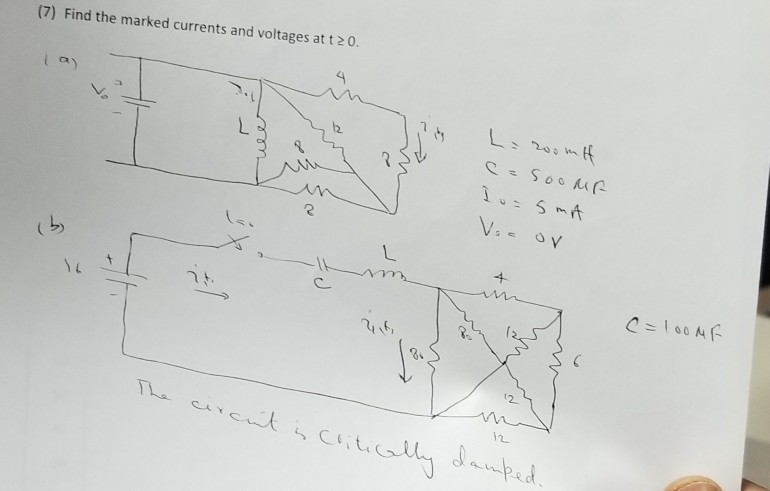 (7) Find the marked currents and voltages at t ≥ 0.
(a)
4
V₀ + -
L
12
8
8
L = 200 mH
C = 500 μF
I₀ = 5 mA
V₀ = 0V
(b)
t=0
L
4
16 + -
C
12
6
C = 100 μF
12
12
The circuit is critically damped.